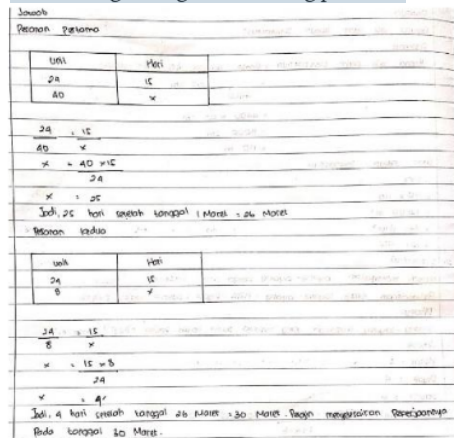 Jawab
Pesanan Pertama
Unit Hari
24 15
40 x
24 = 15
40 x
x = 40 x 15
24
x = 25
Jadi, 25 hari setelah tanggal 1 Maret = 26 Maret
Pesanan kedua
Unit Hari
24 15
8 x
24 = 15
8 x
x = 15 x 8
24
x = 4
Jadi, 4 hari setelah tanggal 26 Maret = 30 Maret. menyelesaikan Pekerjaannya
Pada tanggal 30 Maret.